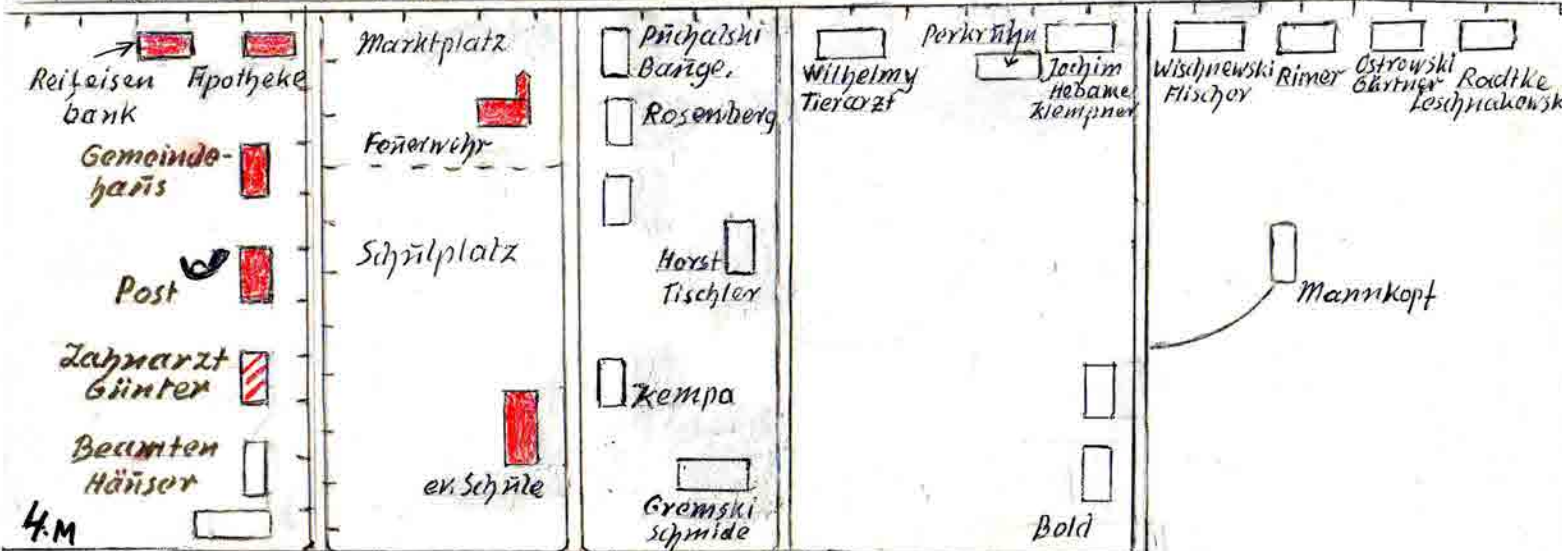 Reifeisen
bank
Apotheke
Gemeinde-
haus
Post
Zahnarzt
Günter
Beamten
Häuser
4.M
Marktplatz
Feuerwehr
Schulplatz
ev. Schule
Puchalski
Bauge.
Rosenberg
Horst
Tischler
Kempa
Gremski
Schmide
Wilhelmy
Tierarzt
Perkruhn
Jochim
Hebame
Klempner
Bold
Wischnewski
Flischer
Rimer
Ostrowski
Gärtner
Radtke
Leschnakowsk
Mannkopf